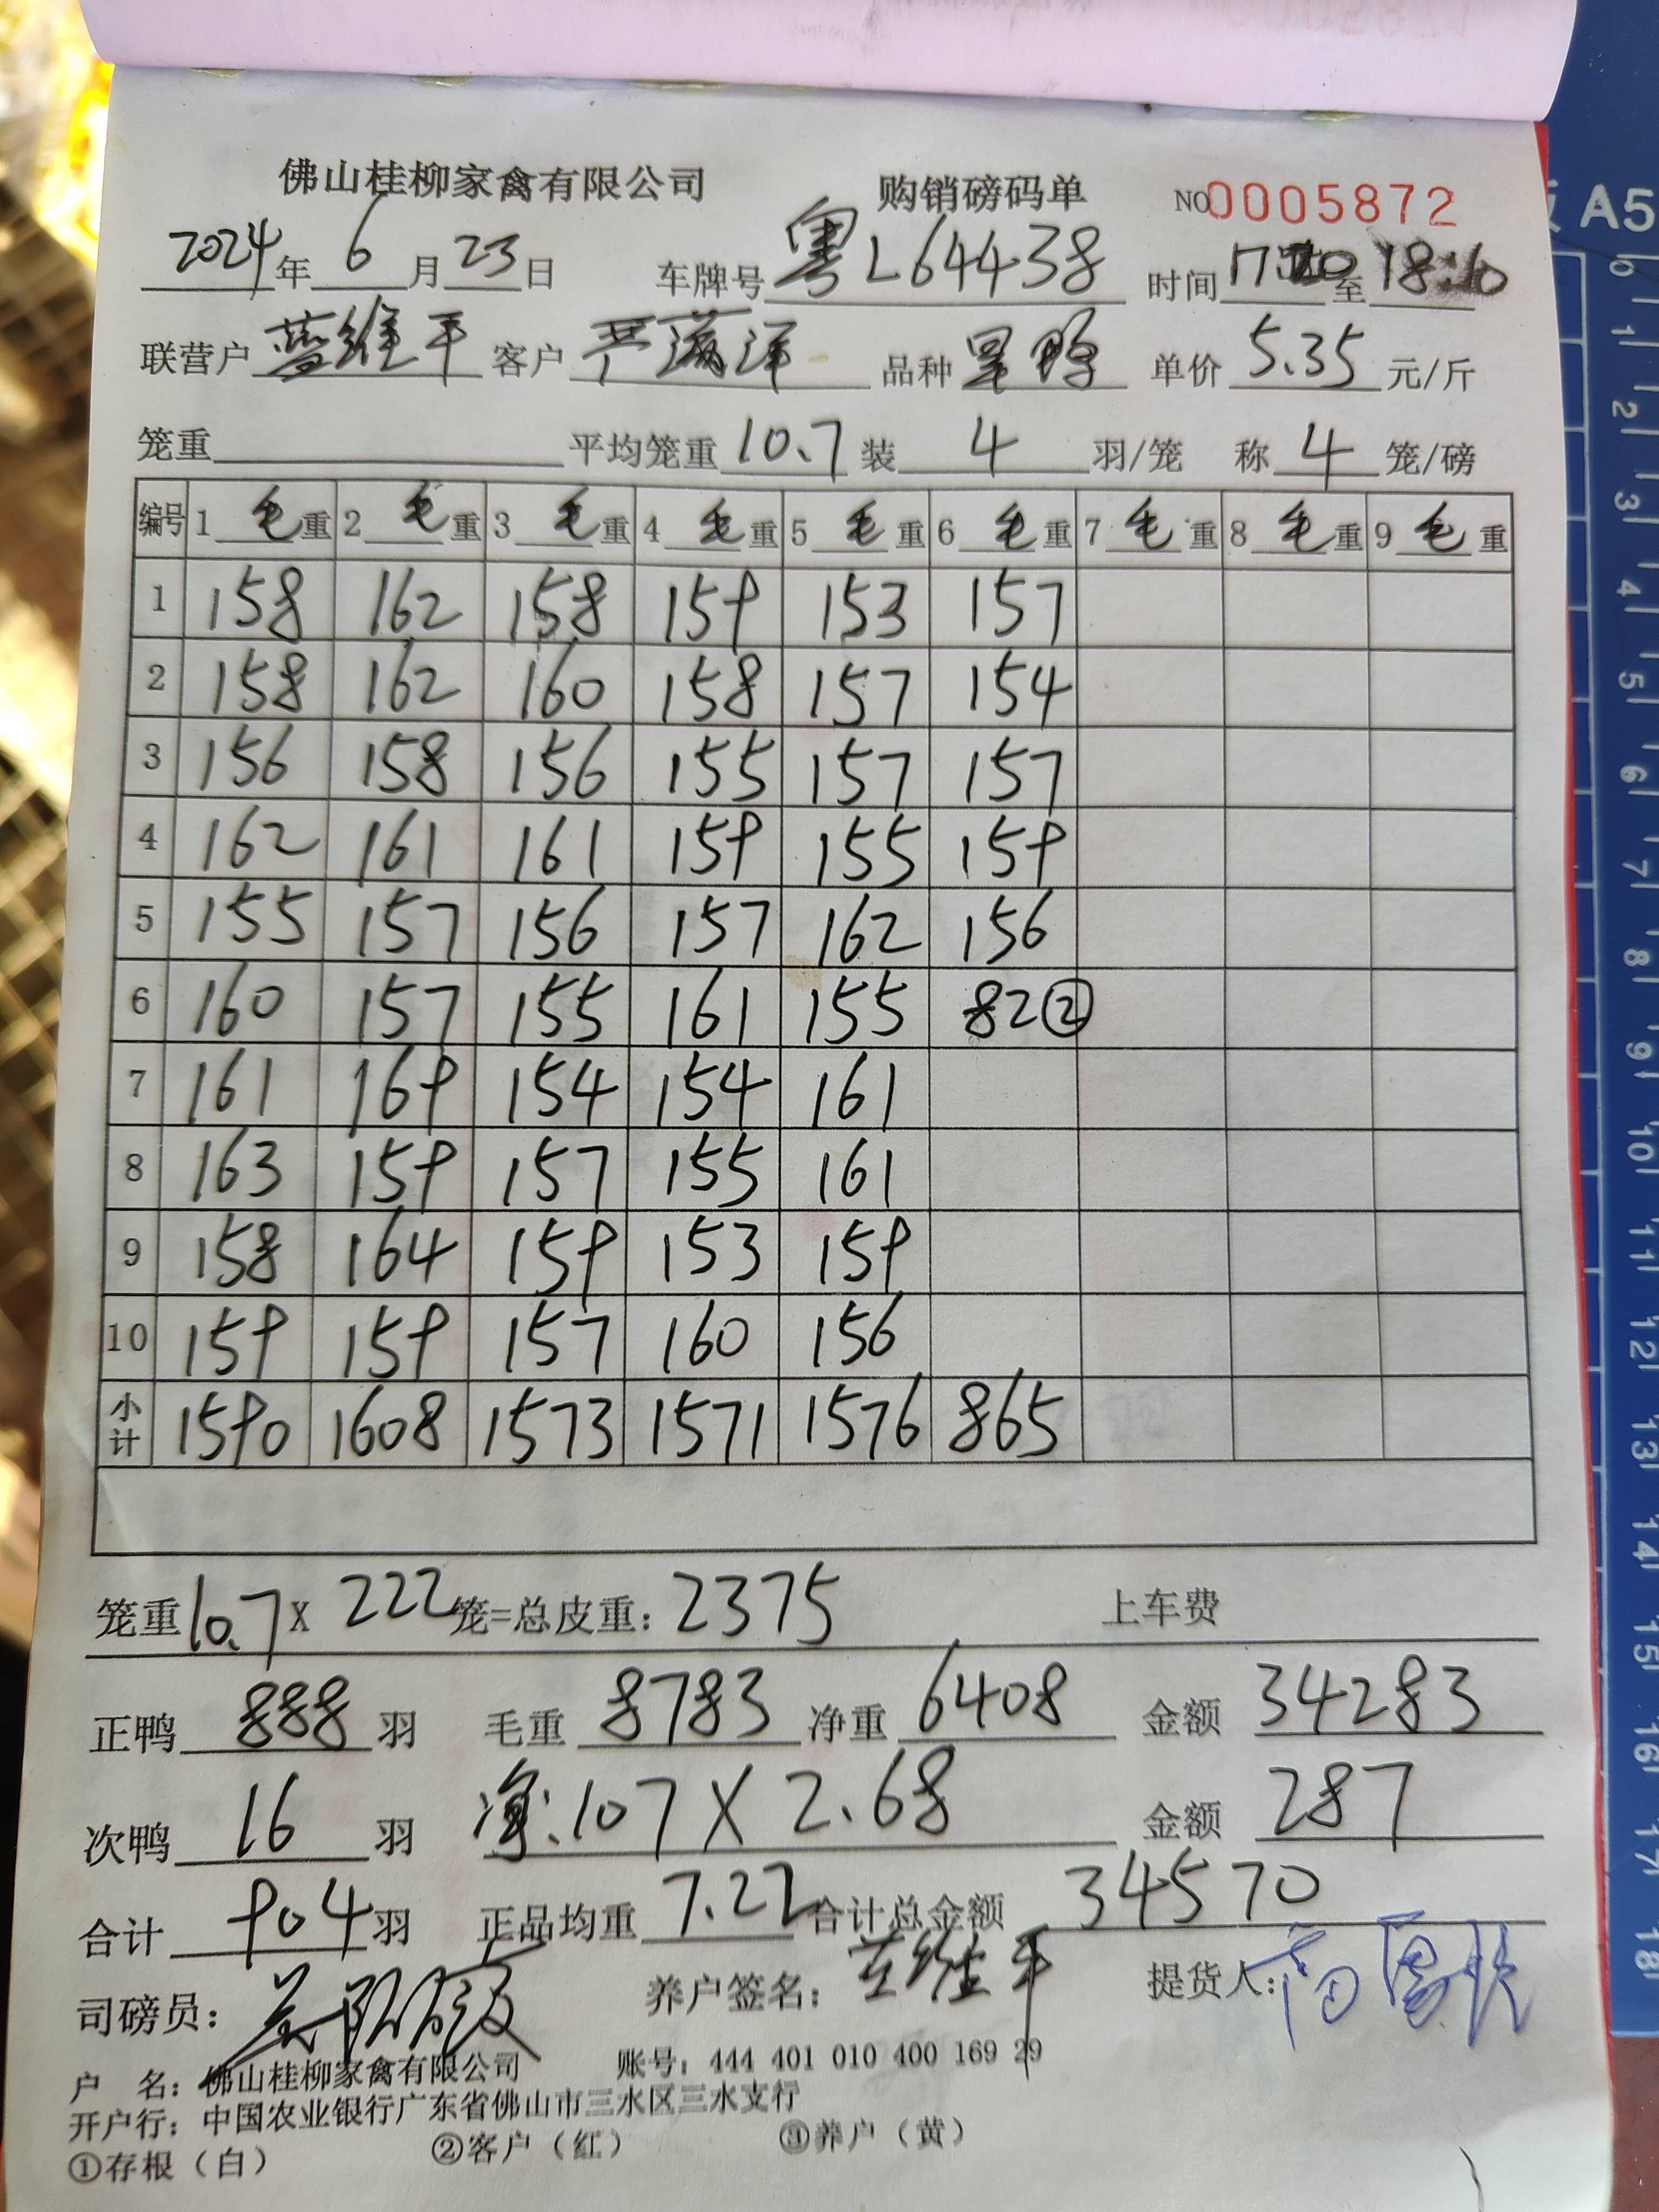 佛山桂柳家禽有限公司 购销磅码单 NO 0005872
2024年 6 月 23 日 车牌号 粤L64438 时间 17 至 18:10
联营户 蓝维平 客户 严 洋 品种 单价 5.35 元/斤
笼重 平均笼重 10.7 装 4 羽/笼 称 4 笼/磅
编号 1 毛重 2 毛重 3 毛重 4 毛重 5 毛重 6 毛重 7 毛重 8 毛重 9 毛重
1 158 162 158 159 153 157
2 158 162 160 158 157 154
3 156 158 156 155 157 157
4 162 161 161 159 155 159
5 155 157 156 157 162 156
6 160 157 155 161 155 82②
7 161 169 154 154 161
8 163 159 157 155 161
9 158 164 159 153 159
10 159 159 157 160 156
小计 1590 1608 1573 1571 1576 865
笼重 10.7 X 222 笼=总皮重: 2375 上车费
正鸭 888 羽 毛重 8783 净重 6408 金额 34283
次鸭 16 羽 净:107 X 2.68 金额 287
合计 904 羽 正品均重 7.22 合计总金额 34570
司磅员: 养户签名: 蓝维平 提货人:
户 名: 佛山桂柳家禽有限公司 账号: 444 401 010 400 169 29
开户行: 中国农业银行广东省佛山市三水区三水支行
①存根(白) ②客户(红) ③养户(黄)
A5
0 1 2 3 4 5 6 7 8 9 10 11 12 13 14 15 16 17 18